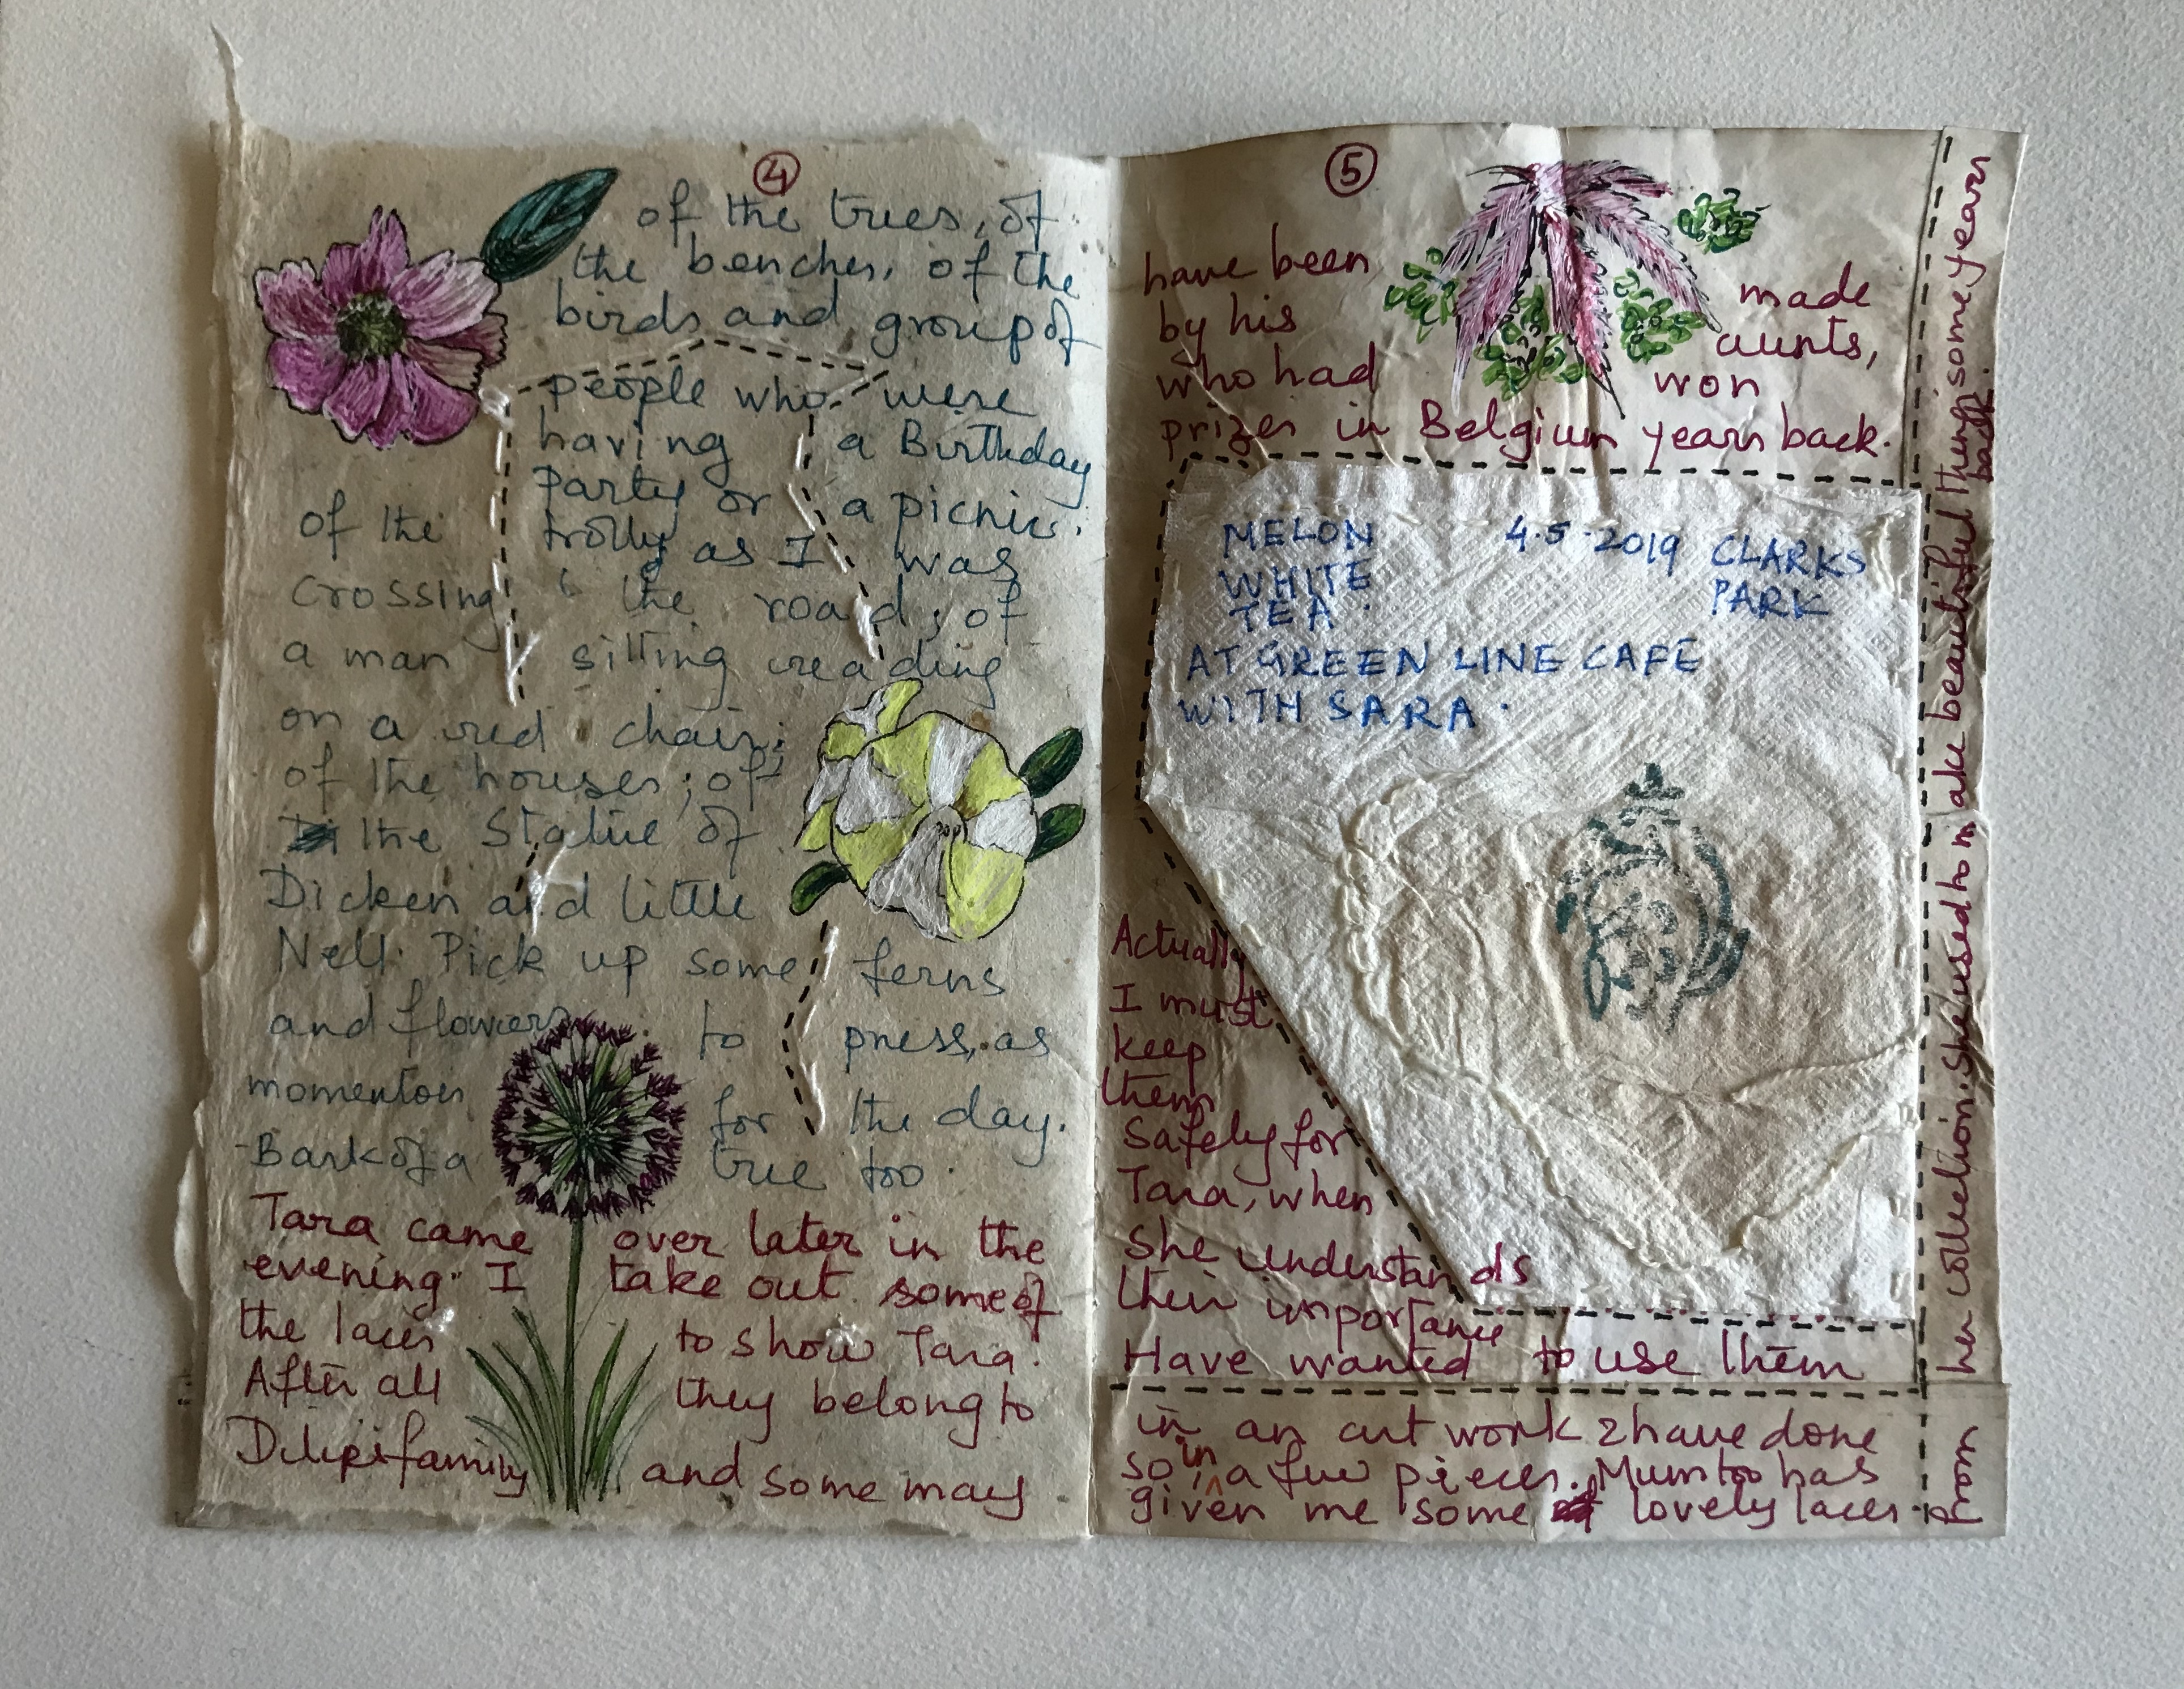 4
of the trees, of
the benches, of the
birds and group of
people who were
having a Birthday
Party or a picnic.
of the trolly as I was
crossing the road; of
a man sitting reading
on a red chair;
of the houses; of
the Statue of
Dicken and little
Nell. Pick up some ferns
and flowers to press, as
momentoes for the day.
Bark of a tree too.
Tara came over later in the
evening. I take out some of
the laces to show Tara.
After all they belong to
Dilip's family and some may
5
have been made
by his aunts,
who had won
prizes in Belgium years back.
MELON 4.5.2019 CLARKS
WHITE PARK
TEA.
AT GREEN LINE CAFE
WITH SARA.
Actually
I must
keep
them
safely for
Tara, when
she understands
their importance
Have wanted to use them
in an art work & have done
so in a few pieces. Mum too has
given me some lovely laces
from her collection. She used to make beautiful things some years
back.